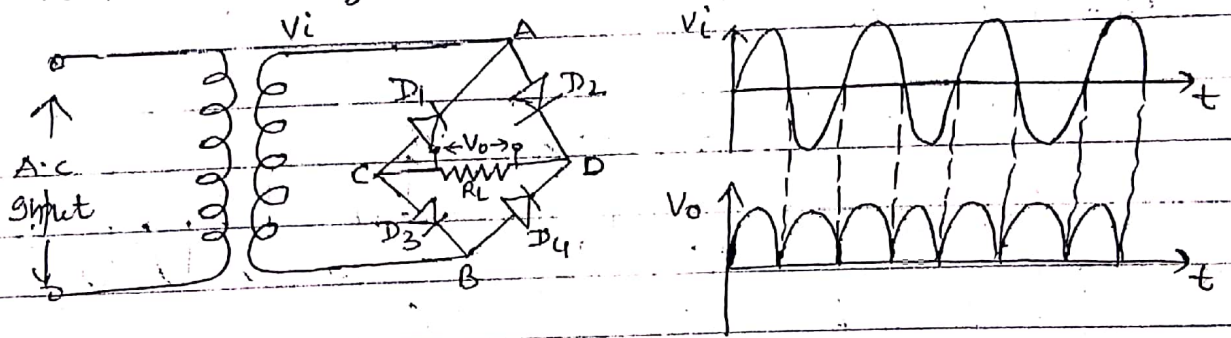 Vi
A
D1
D2
←Vo→
C
RL
D
D3
D4
B
A.C
Input
Vi
t
Vo
t